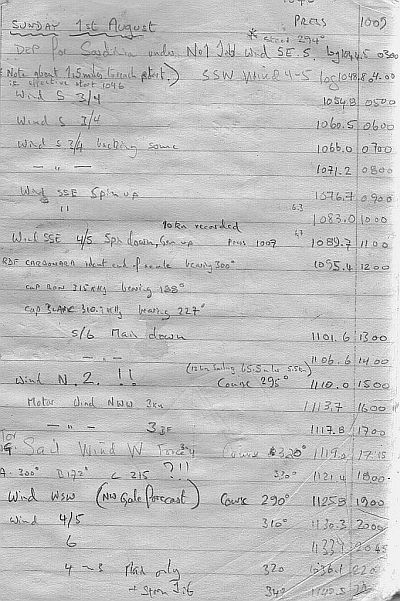 SUNDAY 1st August PRESS 1009
* steer 294°
DEP for Sardinia under No1 Jib Wind SE.5. log 1044.5 0300
Note about 1.5 miles to reach start. SSW Wind 4-5 log 1048.8 0400
is effective start 1046
Wind S 3/4 1054.8 0500
Wind S 3/4 1060.5 0600
Wind S 3/4 backing some 1066.0 0700
— " — 1071.2 0800
Wind SSE Spin up 1076.7 0900
" 6.3 1083.0 1000
10kn recorded
Wind SSE 4/5 Spin down, Gen up Press 1007 6.7 1089.7 1100
RDF CARBONARA ident end of bearing 300° 1095.4 1200
CAP BON 315 KHz bearing 188°
CAP BLANC 310.3 KHz bearing 227°
5/6 Main down 1101.6 1300
— " — 1106.6 1400
(12 hrs Sailing 65.5 miles 5.5kn)
Wind N.2. !! Course 295° 1110.0 1500
Motor Wind NWW 3kn 1113.7 1600
— " — 3 1117.8 1700
Sail Wind W Force 3/4 Course 320° 1119.0 17.15
A. 300° B 172° C 215 ?!! 330° 1121.4 1800
Wind WSW (NW Gale Forecast) Course 290° 1125.8 1900
Wind 4/5 310° 1130.3 2000
6 2045
4 – 5 Main only 320 1036.1
+ Storm Jib 340